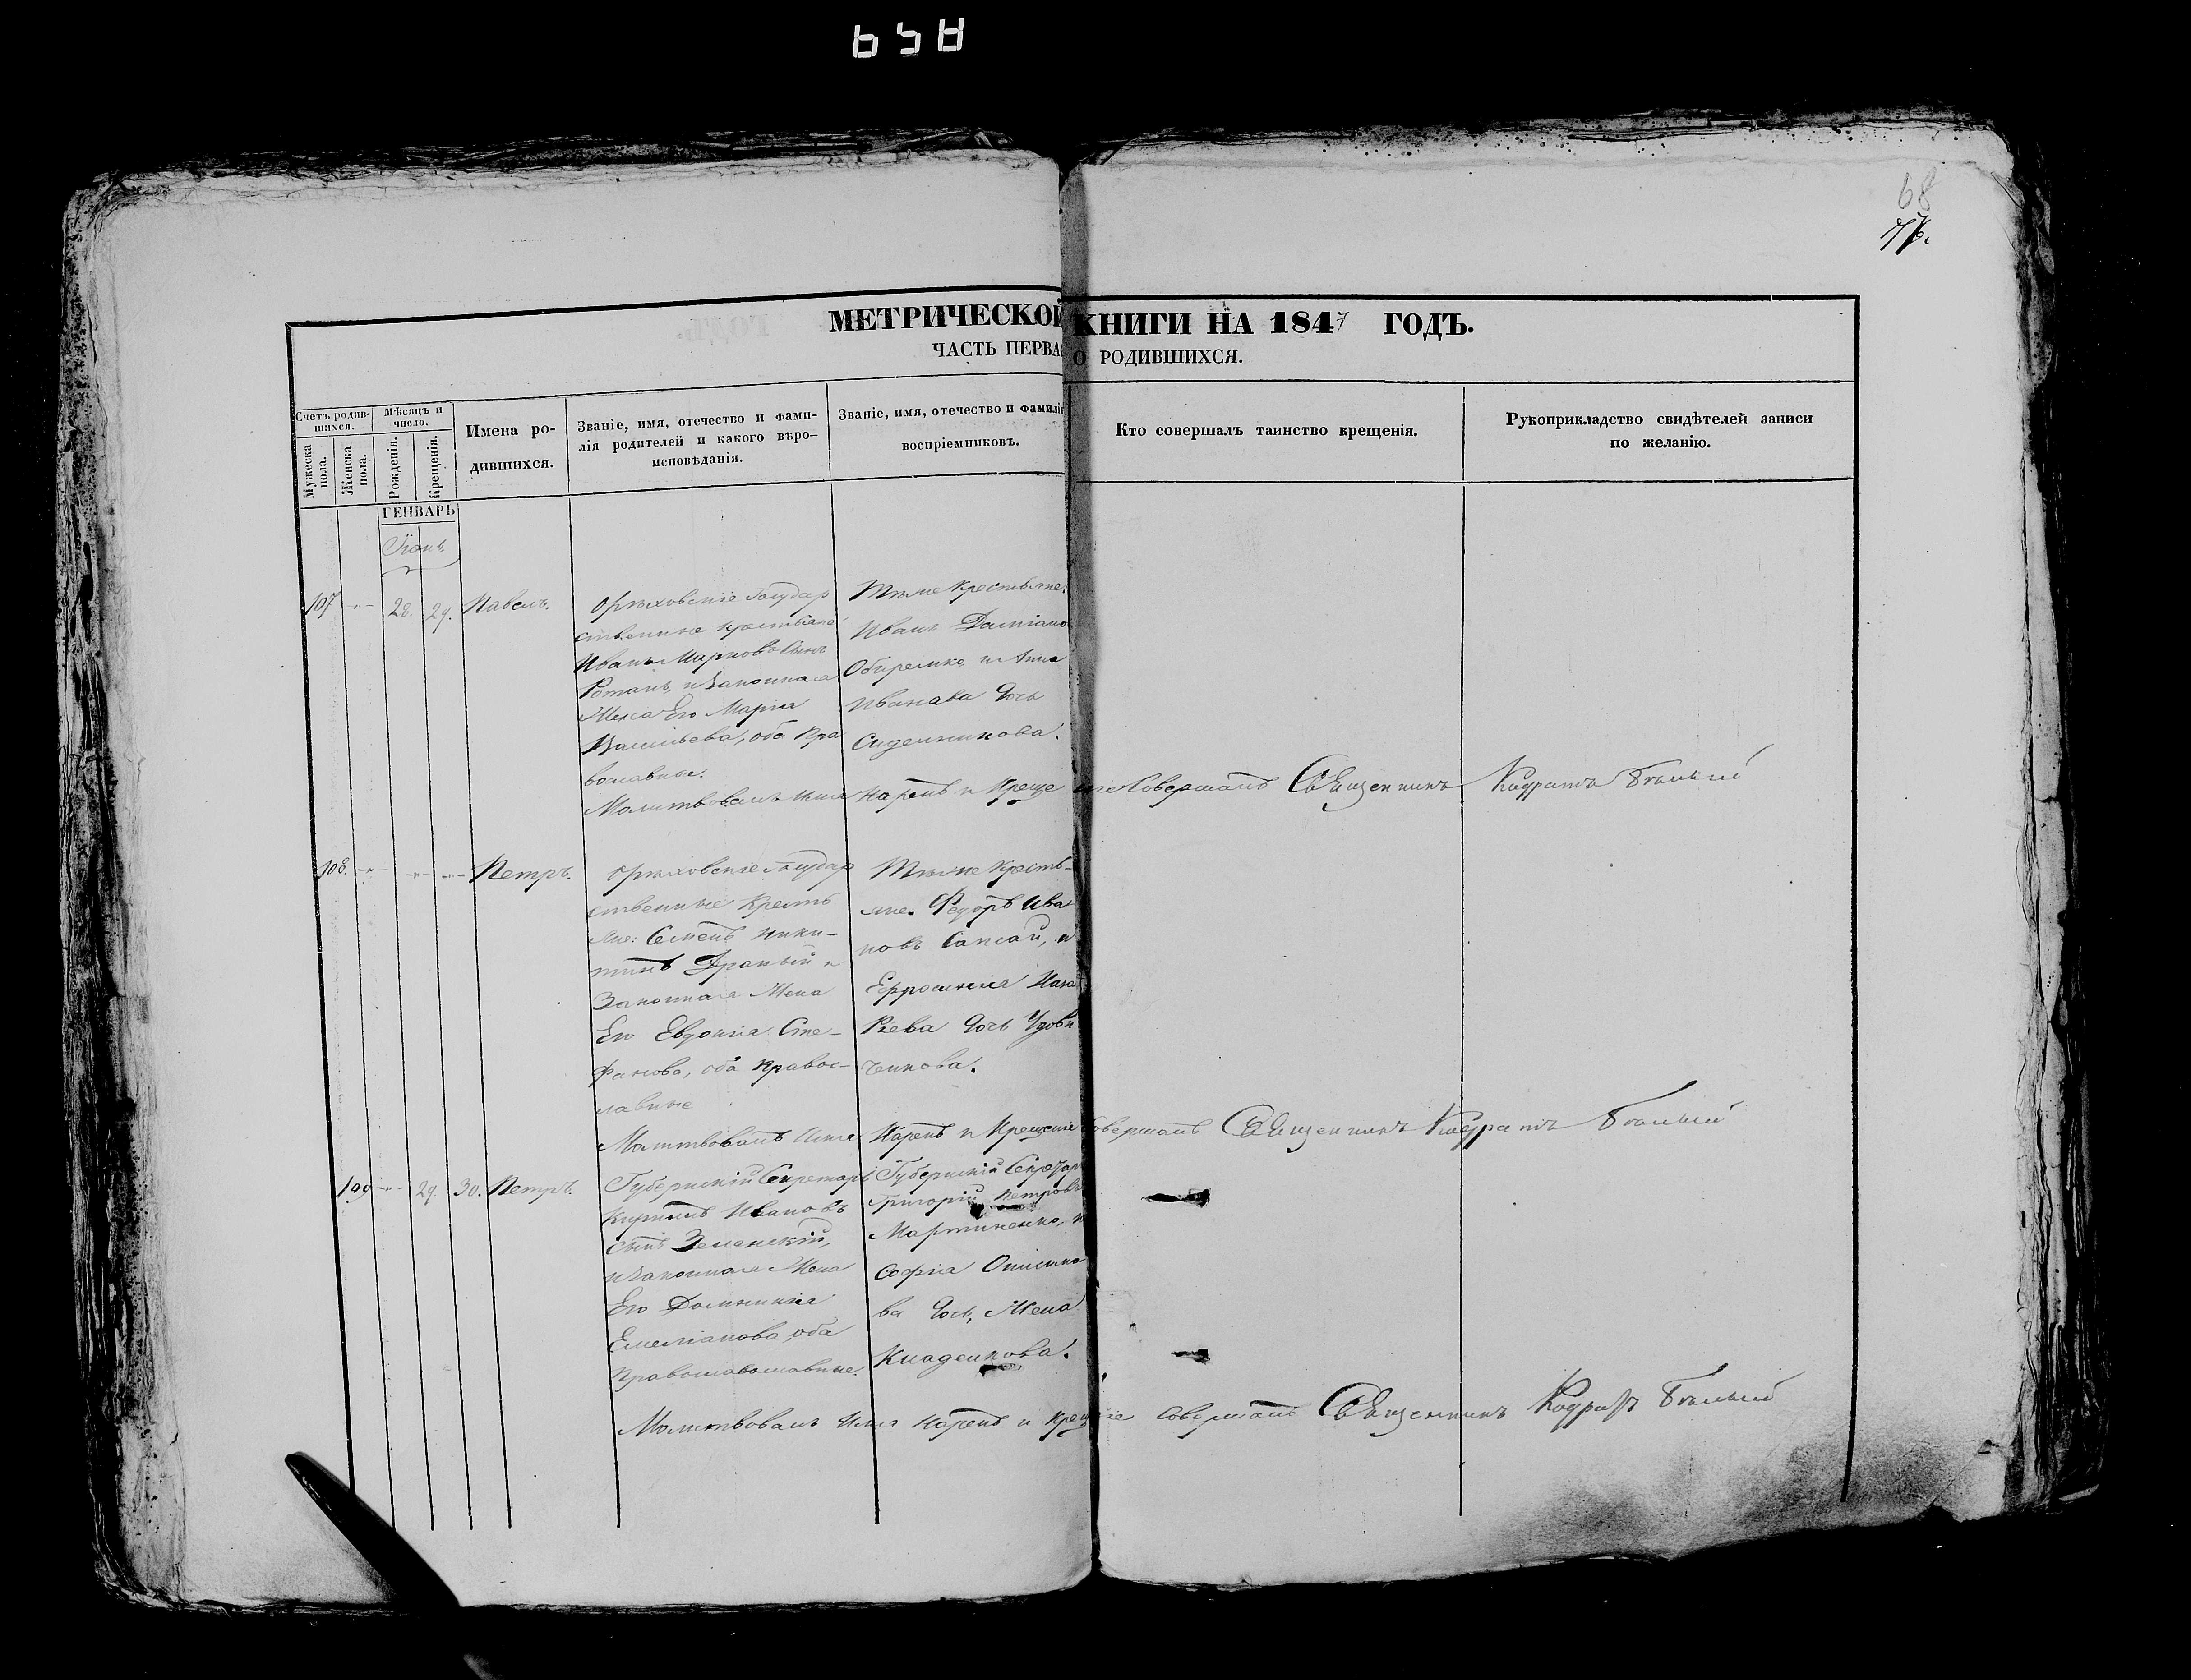 859
68
МЕТРИЧЕСКОЙ КНИГИ НА 1847 ГОДЪ.
ЧАСТЬ ПЕРВА О РОДИВШИХСЯ.
Счетъ родив-
шихся.
Мужеска пола.
Женска пола.
Мѣсяцъ и
число.
Рожденія.
Крещенія.
Имена ро-
дившихся.
Званіе, имя, отечество и фами-
лія родителей и какого вѣро-
исповѣданія.
Званіе, имя, отечество и фамилія
воспріемниковъ.
Кто совершалъ таинство крещенія.
Рукоприкладство свидѣтелей записи
по желанію.
ГЕНВАРЬ
Іюнь
107 -"- 28. 29. Павелъ.
Орѣховскіе Государ
ственные крестьяне
Иванъ Марковъ сынъ
Ротань, и Законная
Жена Его Марія
Васильева, оба Пра
вославные.
Тѣ же Крестьяне:
Иванъ Даміано
Обиремко и Анна
Иванова дочь
Сиденникова.
Молитвовалъ Имя нарекъ и Креще ніе Совершалъ Священникъ Кодратъ Бѣлый
108. -"- -"- -"- Петръ.
Орѣховскіе Государ
ственные Кресть
яне: Семенъ Ники-
тинъ Драный и
Законная Жена
Его Евдокія Сте-
фанова, оба Правос-
лавные
Тѣ же Кресть-
яне. Федоръ Ива
новъ Сапсай, и
Ефросинія Иака
кіева дочь Удови
ченкова.
Молитвовалъ Имя Нарекъ и Крещеніе Совершалъ Священникъ Кодратъ Бѣлый
109 -"- 29. 30. Петръ.
Губернскій Секретарь
Кирилъ Ивановъ
сынъ Зеленскій,
и Законная Жена
Его Домникія
Емеліанова, оба
Православославные.
Губернскій Секретарь
Григорій Петровъ
Мартиненко, и
Софія
ва дочь, Жена
Кладенкова.
Молитвовалъ Имя Нарекъ и Крещеніе Совершалъ Священникъ Кодратъ Бѣлый